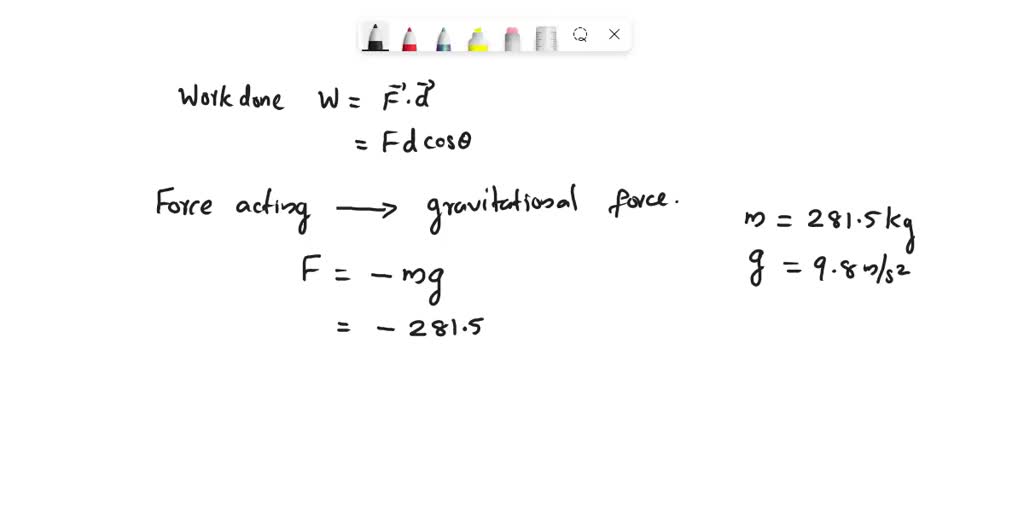 Work done W = F⃗·d⃗
= Fd cosθ
Force acting → gravitational force.
m = 281.5 kg
g = 9.8 m/s2
F = - mg
= - 281.5